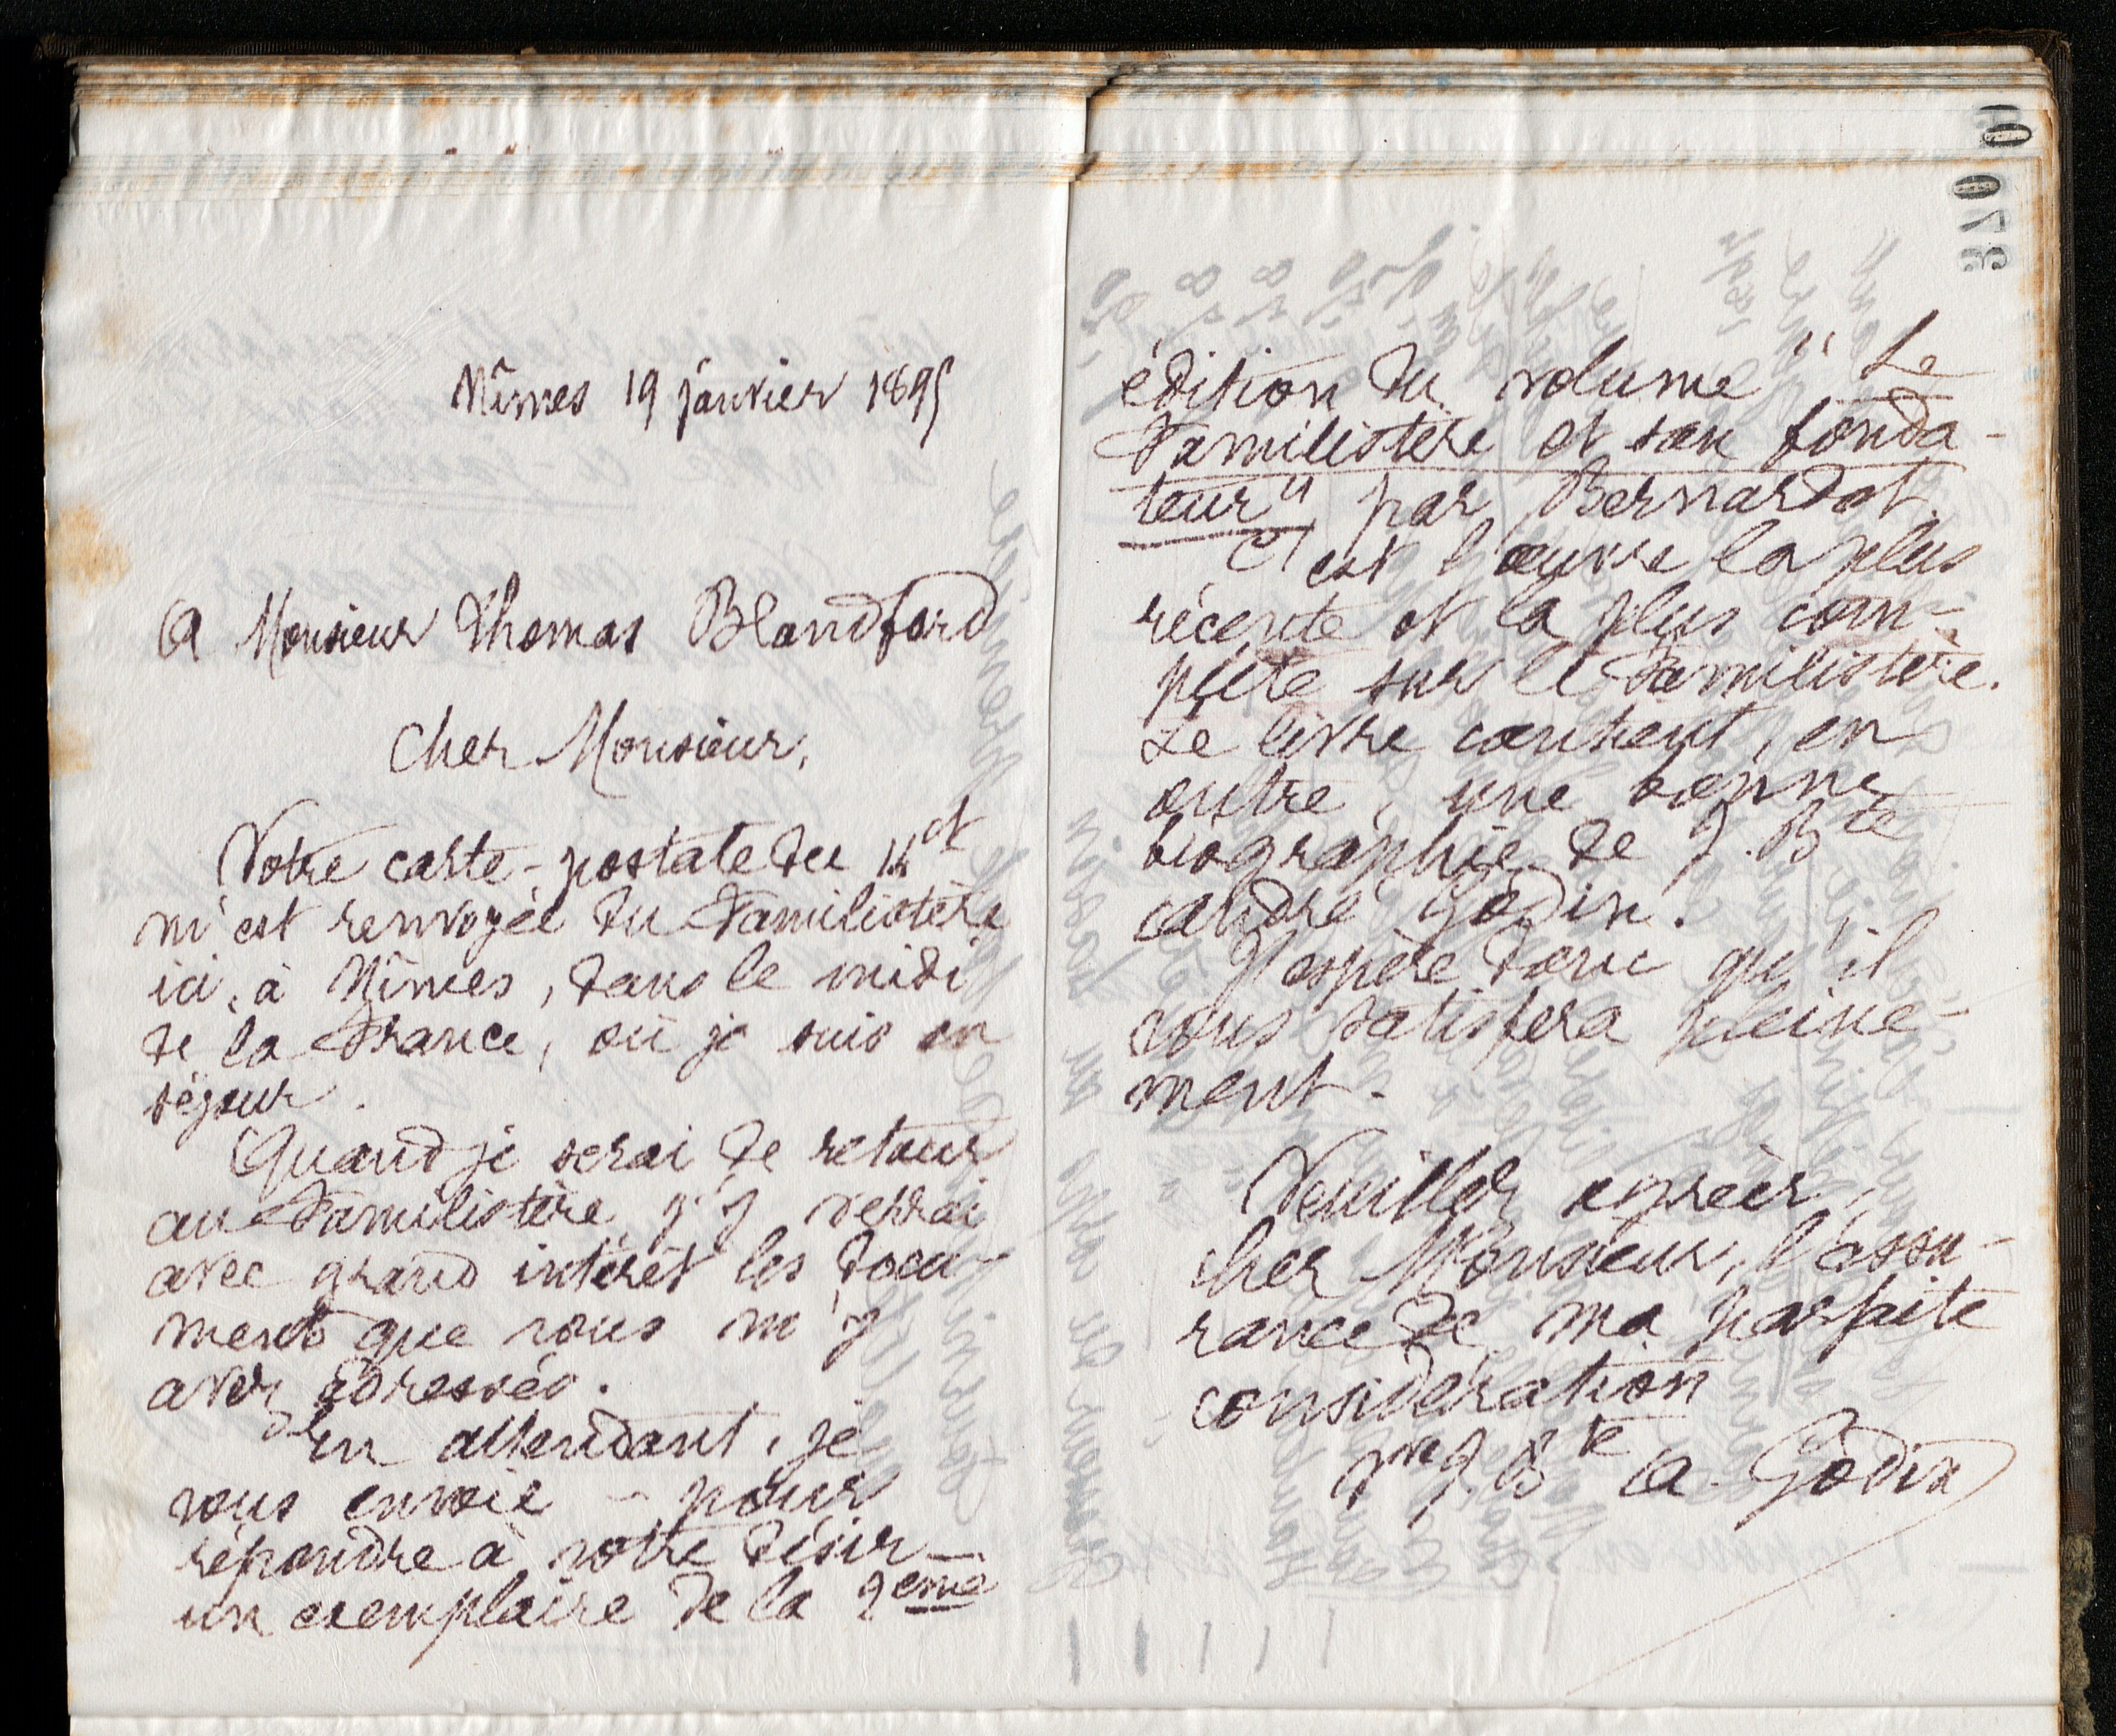 Nîmes 19 janvier 1895
A Monsieur Thomas Blandford
Cher Monsieur,
Votre carte-postale du 14 ct
m'est renvoyée du Familistère
ici, à Nîmes, dans le midi
de la France, où je suis en
séjour.
Quand je serai de retour
au Familistère, j'y verrai
avec grand intérêt les docu-
ments que vous m'y
avez adressés.
En attendant, je
vous envoie – pour
répondre à votre désir –
un exemplaire de la 2eme
370
0
édition du volume "Le
Familistère et son fonda-
teur", par Bernardot.
C'est l'œuvre la plus
récente et la plus com-
plète sur le Familistère.
Le livre contient, en
outre, une bonne
biographie de J. Bte
André Godin.
J'espère donc qu'il
vous satisfera pleine-
ment.
Veuillez agréer,
cher Monsieur, l'assu-
rance de ma parfaite
considération
Vve J. Bte A. Godin